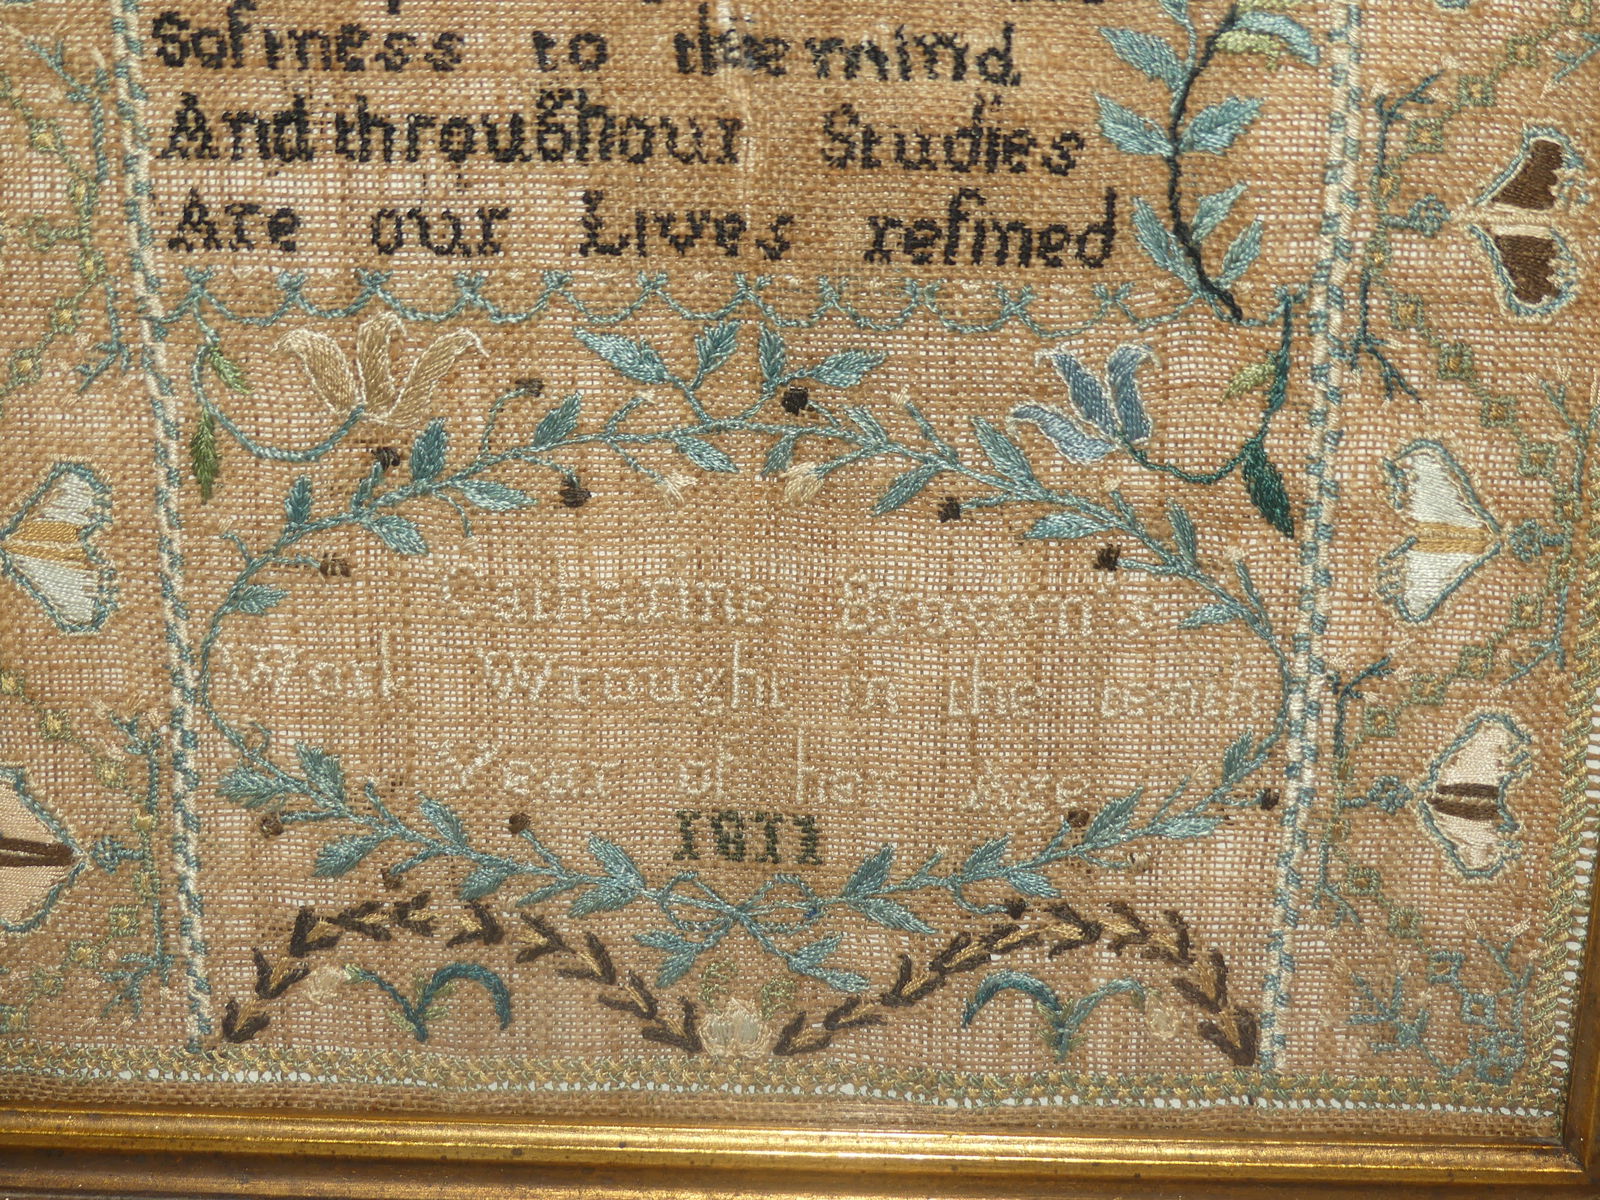 Softness to the mind
And through our Studies
Are our Lives refined
Catharine Brown's
Work Wrought in the tenth
Year of her Age
1811